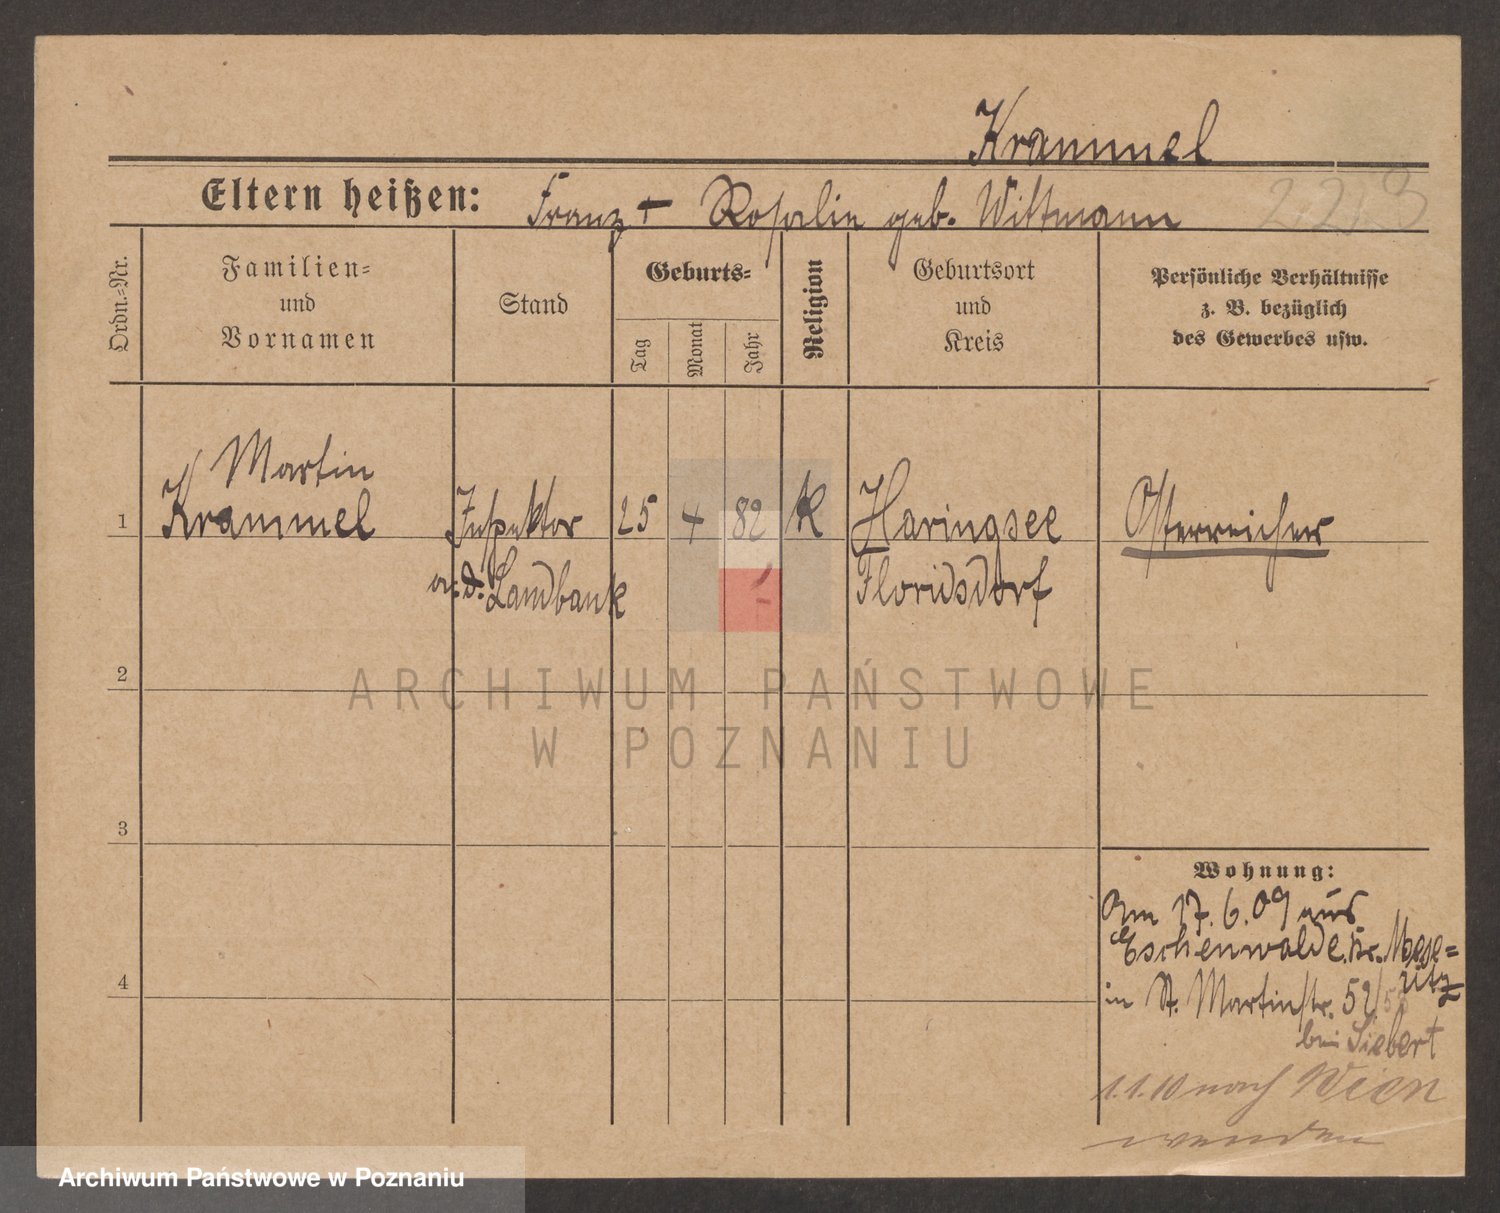 Krammel
Eltern heißen: Franz + Rosalie geb. Wittmann 223
Ordn.-Nr.
Familien-
und
Vornamen
Stand
Geburts-
Tag
Monat
Jahr
Religion
Geburtsort
und
Kreis
Persönliche Verhältnisse
z. B. bezüglich
des Gewerbes usw.
Martin
1 Krammel Inspektor 25 4 82 K Haringsee Österreicher
a. d. Landbank Floridsdorf
2
ARCHIWUM PAŃSTWOWE
W POZNANIU
3
Wohnung:
Am 17.6.09 aus
Eschenwalde, Kr. Mese-
ritz
4
in St. Martinstr. 52/53
bei Siebert
1.1.10 nach Wien
Archiwum Państwowe w Poznaniu